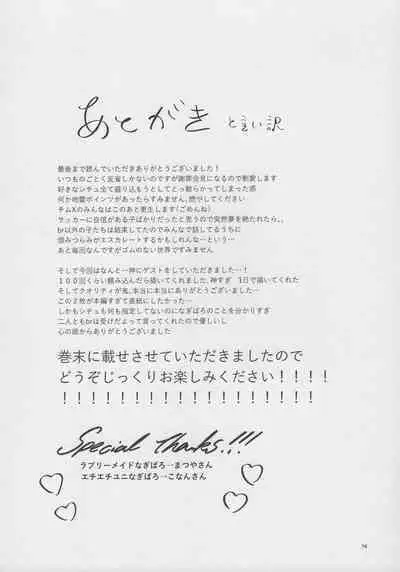 あとがきと言い訳
最後まで読んでいただきありがとうございました！
いつものごとく反省しかないのですが謝罪会見になるので割愛します
好きなシチュ全て盛り込もうとしてとっ散らかってしまった感
何か地雷ポインツがあったらすみません、燃やしてください
チムXのみんなはこのあと更生します（ごめんね）
サッカーに自信がある子ばかりだったと思うので突然夢を絶たれたら、、
br以外の子たちは結束してたのでみんなで話してるうちに
恨みつらみがエスカレートするかもしれんな…という…
あと毎回なんですがゴムのない世界ですみません
そして今回はなんと一神にゲストをしていただきました…！
１００回くらい頼み込んだら描いてくれました、神すぎ　３日で描いてくれた
そしてクオリティが鬼、本当に本当にありがとうございました…
この２枚が本編すぎて表紙にしたかった…
しかもシチュも何も指定してないのになぎばろのことを分かりすぎ
二人ともbrは受けだよって言ってくれたので優しいし
心の底からありがとうございます
巻末に載せさせていただきましたので
どうぞじっくりお楽しみください！！！！
！！！！！！！！！！！！！！！！！！
Special thanks!!!
ラブリーメイドなぎばろ→まつやさん
エチエチユニなぎばろ→こなんさん